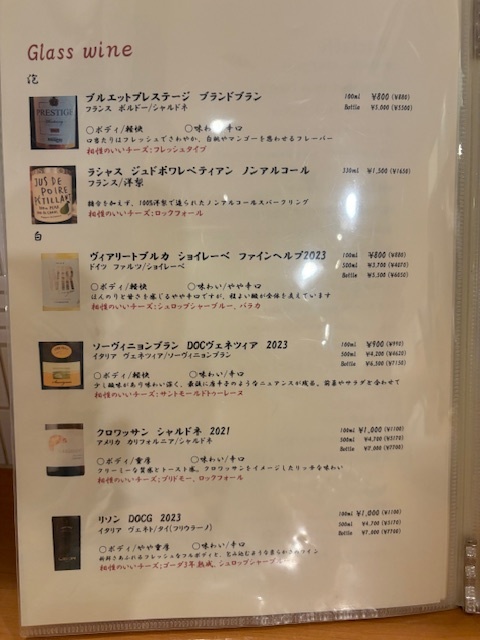 Glass wine
泡
ブルエットプレステージ ブランドブラン
100ml ¥800 (¥880)
フランス ボルドー/シャルドネ
Bottle ¥5,000 (¥5500)
○ボディ/軽快 ○味わい/辛口
口当たりはフレッシュでさわやか、白桃やマンゴーを思わせるフレーバー
相性のいいチーズ:フレッシュタイプ
PRESTIGE
ラシャス ジュドポワレペティアン ノンアルコール
330ml ¥1,500 (¥1650)
フランス/洋梨
糖分を加えず、100%洋梨で造られたノンアルコールスパークリング
相性のいいチーズ:ロックフォール
JUS DE
POIRE
PETILLANT
白
ヴィアリートブルカ ショイレーベ ファインヘルブ2023
100ml ¥800 (¥880)
ドイツ ファルツ/ショイレーベ
500ml ¥3,700 (¥4070)
Bottle ¥5,500 (¥6050)
○ボディ/軽快 ○味わい/やや辛口
ほんのりと甘さを感じるやや辛口ですが、程よい酸が全体を支えています
相性のいいチーズ:シュロップシャーブルー、バラカ
ソーヴィニョンブラン DOCヴェネツィア 2023
100ml ¥900 (¥990)
イタリア ヴェネツィア/ソーヴィニョンブラン
500ml ¥4,200 (¥4620)
Bottle ¥6,500 (¥7150)
○ボディ/軽快 ○味わい/辛口
少し酸味があり味わい深く、最後に唐辛子のようなニュアンスが残る。前菜やサラダと合わせて
相性のいいチーズ:サントモールドトゥーレーヌ
クロワッサン シャルドネ 2021
100ml ¥1,000 (¥1100)
アメリカ カリフォルニア/シャルドネ
500ml ¥4,700 (¥5170)
Bottle ¥7,000 (¥7700)
○ボディ/重厚 ○味わい/辛口
クリーミーな質感とトースト感。クロワッサンをイメージしたリッチな味わい
相性のいいチーズ:ブリドモー、ロックフォール
リソン DOCG 2023
100ml ¥1,000 (¥1100)
イタリア ヴェネト/タイ(フリウラーノ)
500ml ¥4,700 (¥5170)
Bottle ¥7,000 (¥7700)
○ボディ/やや重厚 ○味わい/辛口
新鮮さあふれるフレッシュなフルボディと、包み込むような柔らかさのワイン
相性のいいチーズ:ゴーダ3年熟成、シュロップシャーブルー